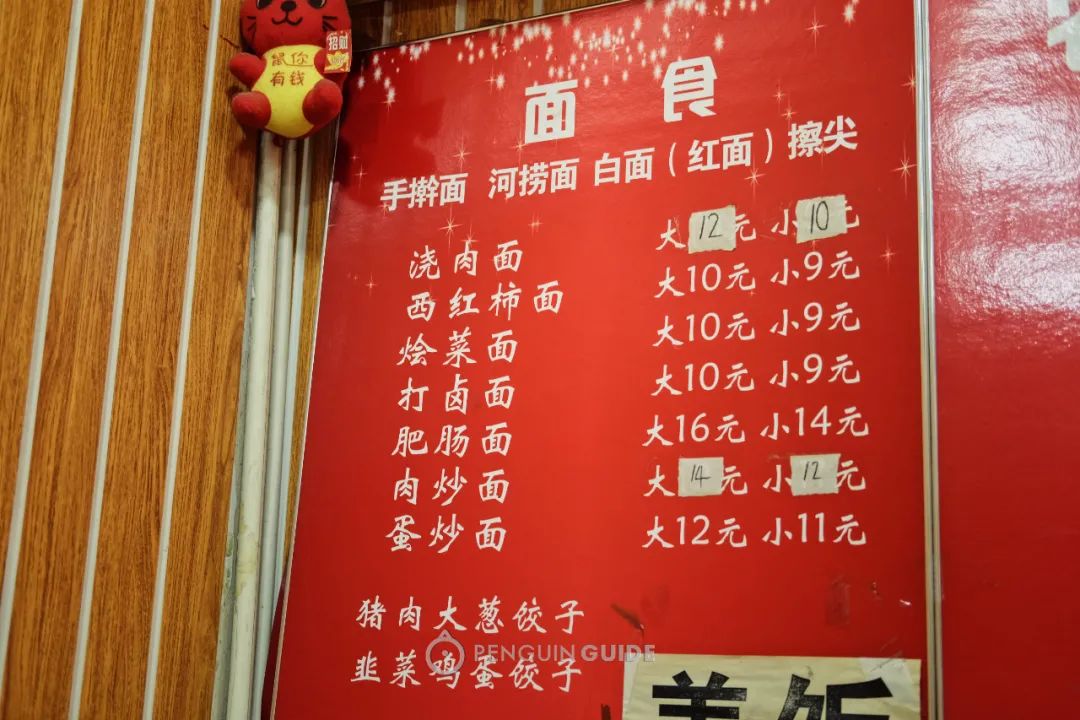 招财
鼠你
有钱
面食
手擀面 河捞面 白面（红面）擦尖
浇肉面 大12元 小10元
西红柿面 大10元 小9元
烩菜面 大10元 小9元
打卤面 大10元 小9元
肥肠面 大16元 小14元
肉炒面 大14元 小12元
蛋炒面 大12元 小11元
猪肉大葱饺子
韭菜鸡蛋饺子
PENGUIN GUIDE
盖饭